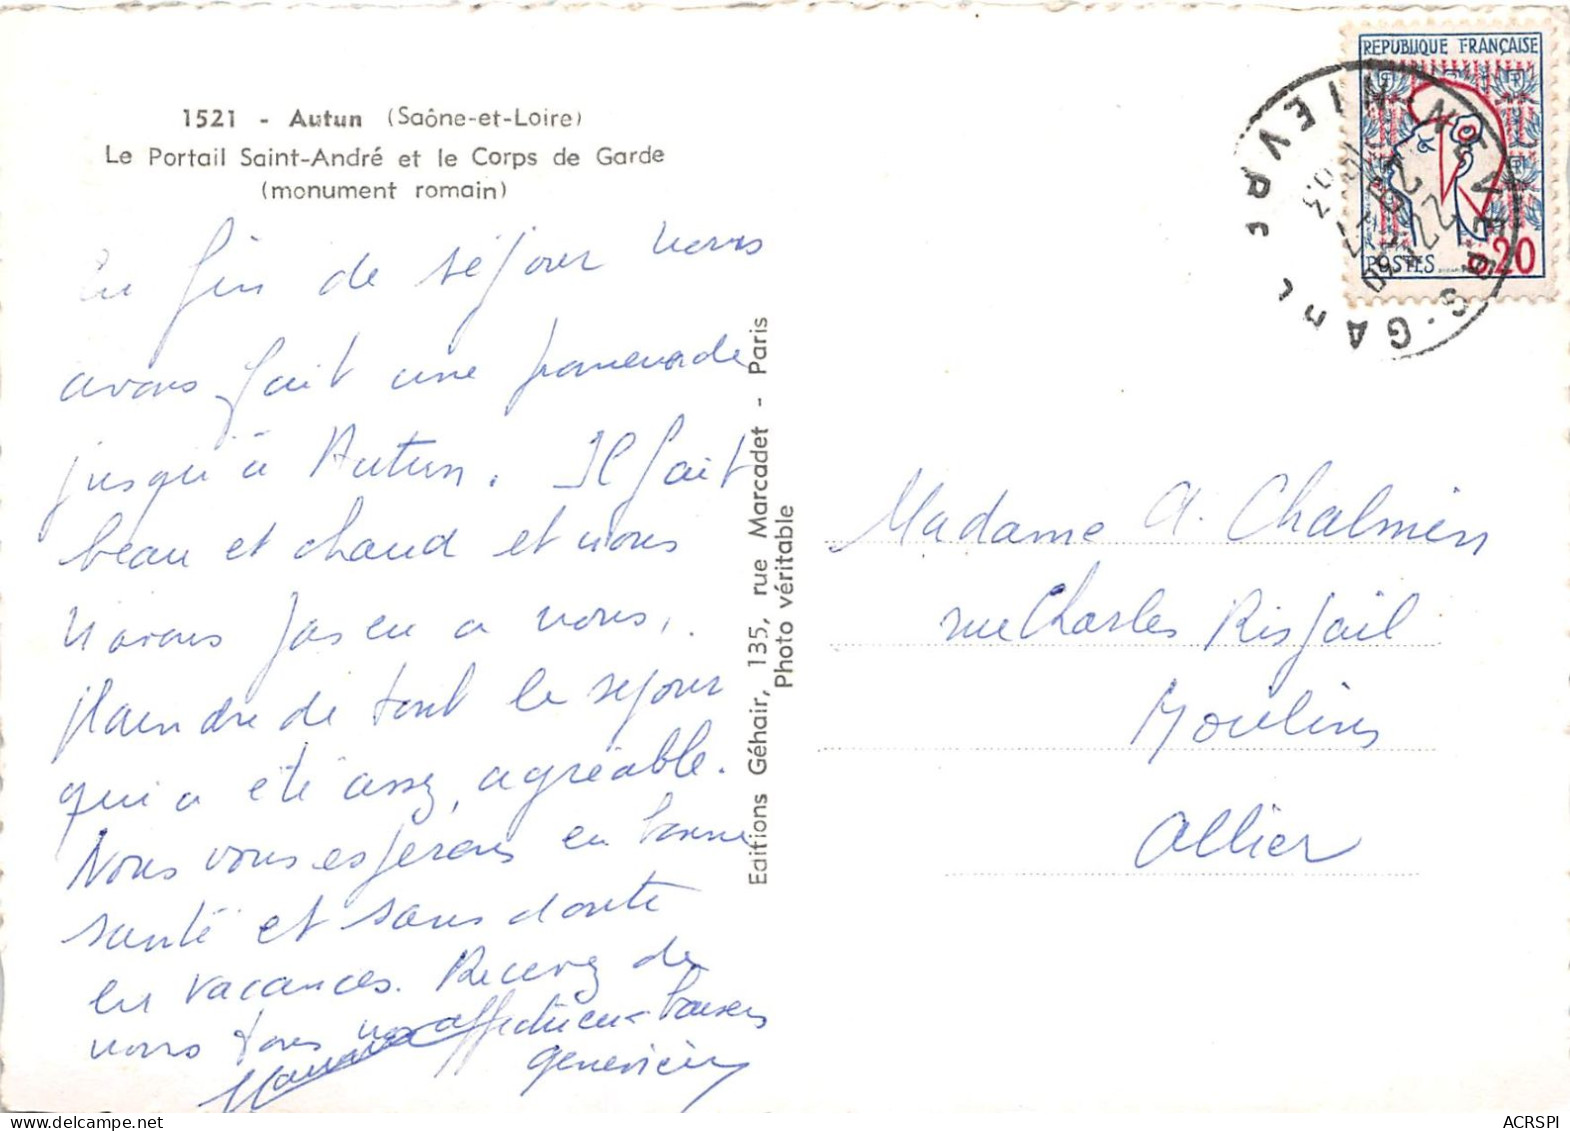 1521 - Autun (Saône-et-Loire)
Le Portail Saint-André et le Corps de Garde
(monument romain)
En fin de séjour nous
avons fait une promenade
jusqu'à Autun. Il fait
beau et chaud et nous
n'avons pas eu a nous
plaindre de tout le séjour
qui a été assez agréable.
Nous vous espérons en bonne
santé et sans doute
en vacances. Recevez de
nous tous nos affectueux baisers
Geneviève
Editions Géhair, 135, rue Marcadet - Paris
Photo véritable
REPUBLIQUE FRANÇAISE
POSTES
0,20
NEVERS-GARE
NIEVRE
Madame A. Chalmin
rue Charles Rispail
Moulins
Allier
ACRSPI